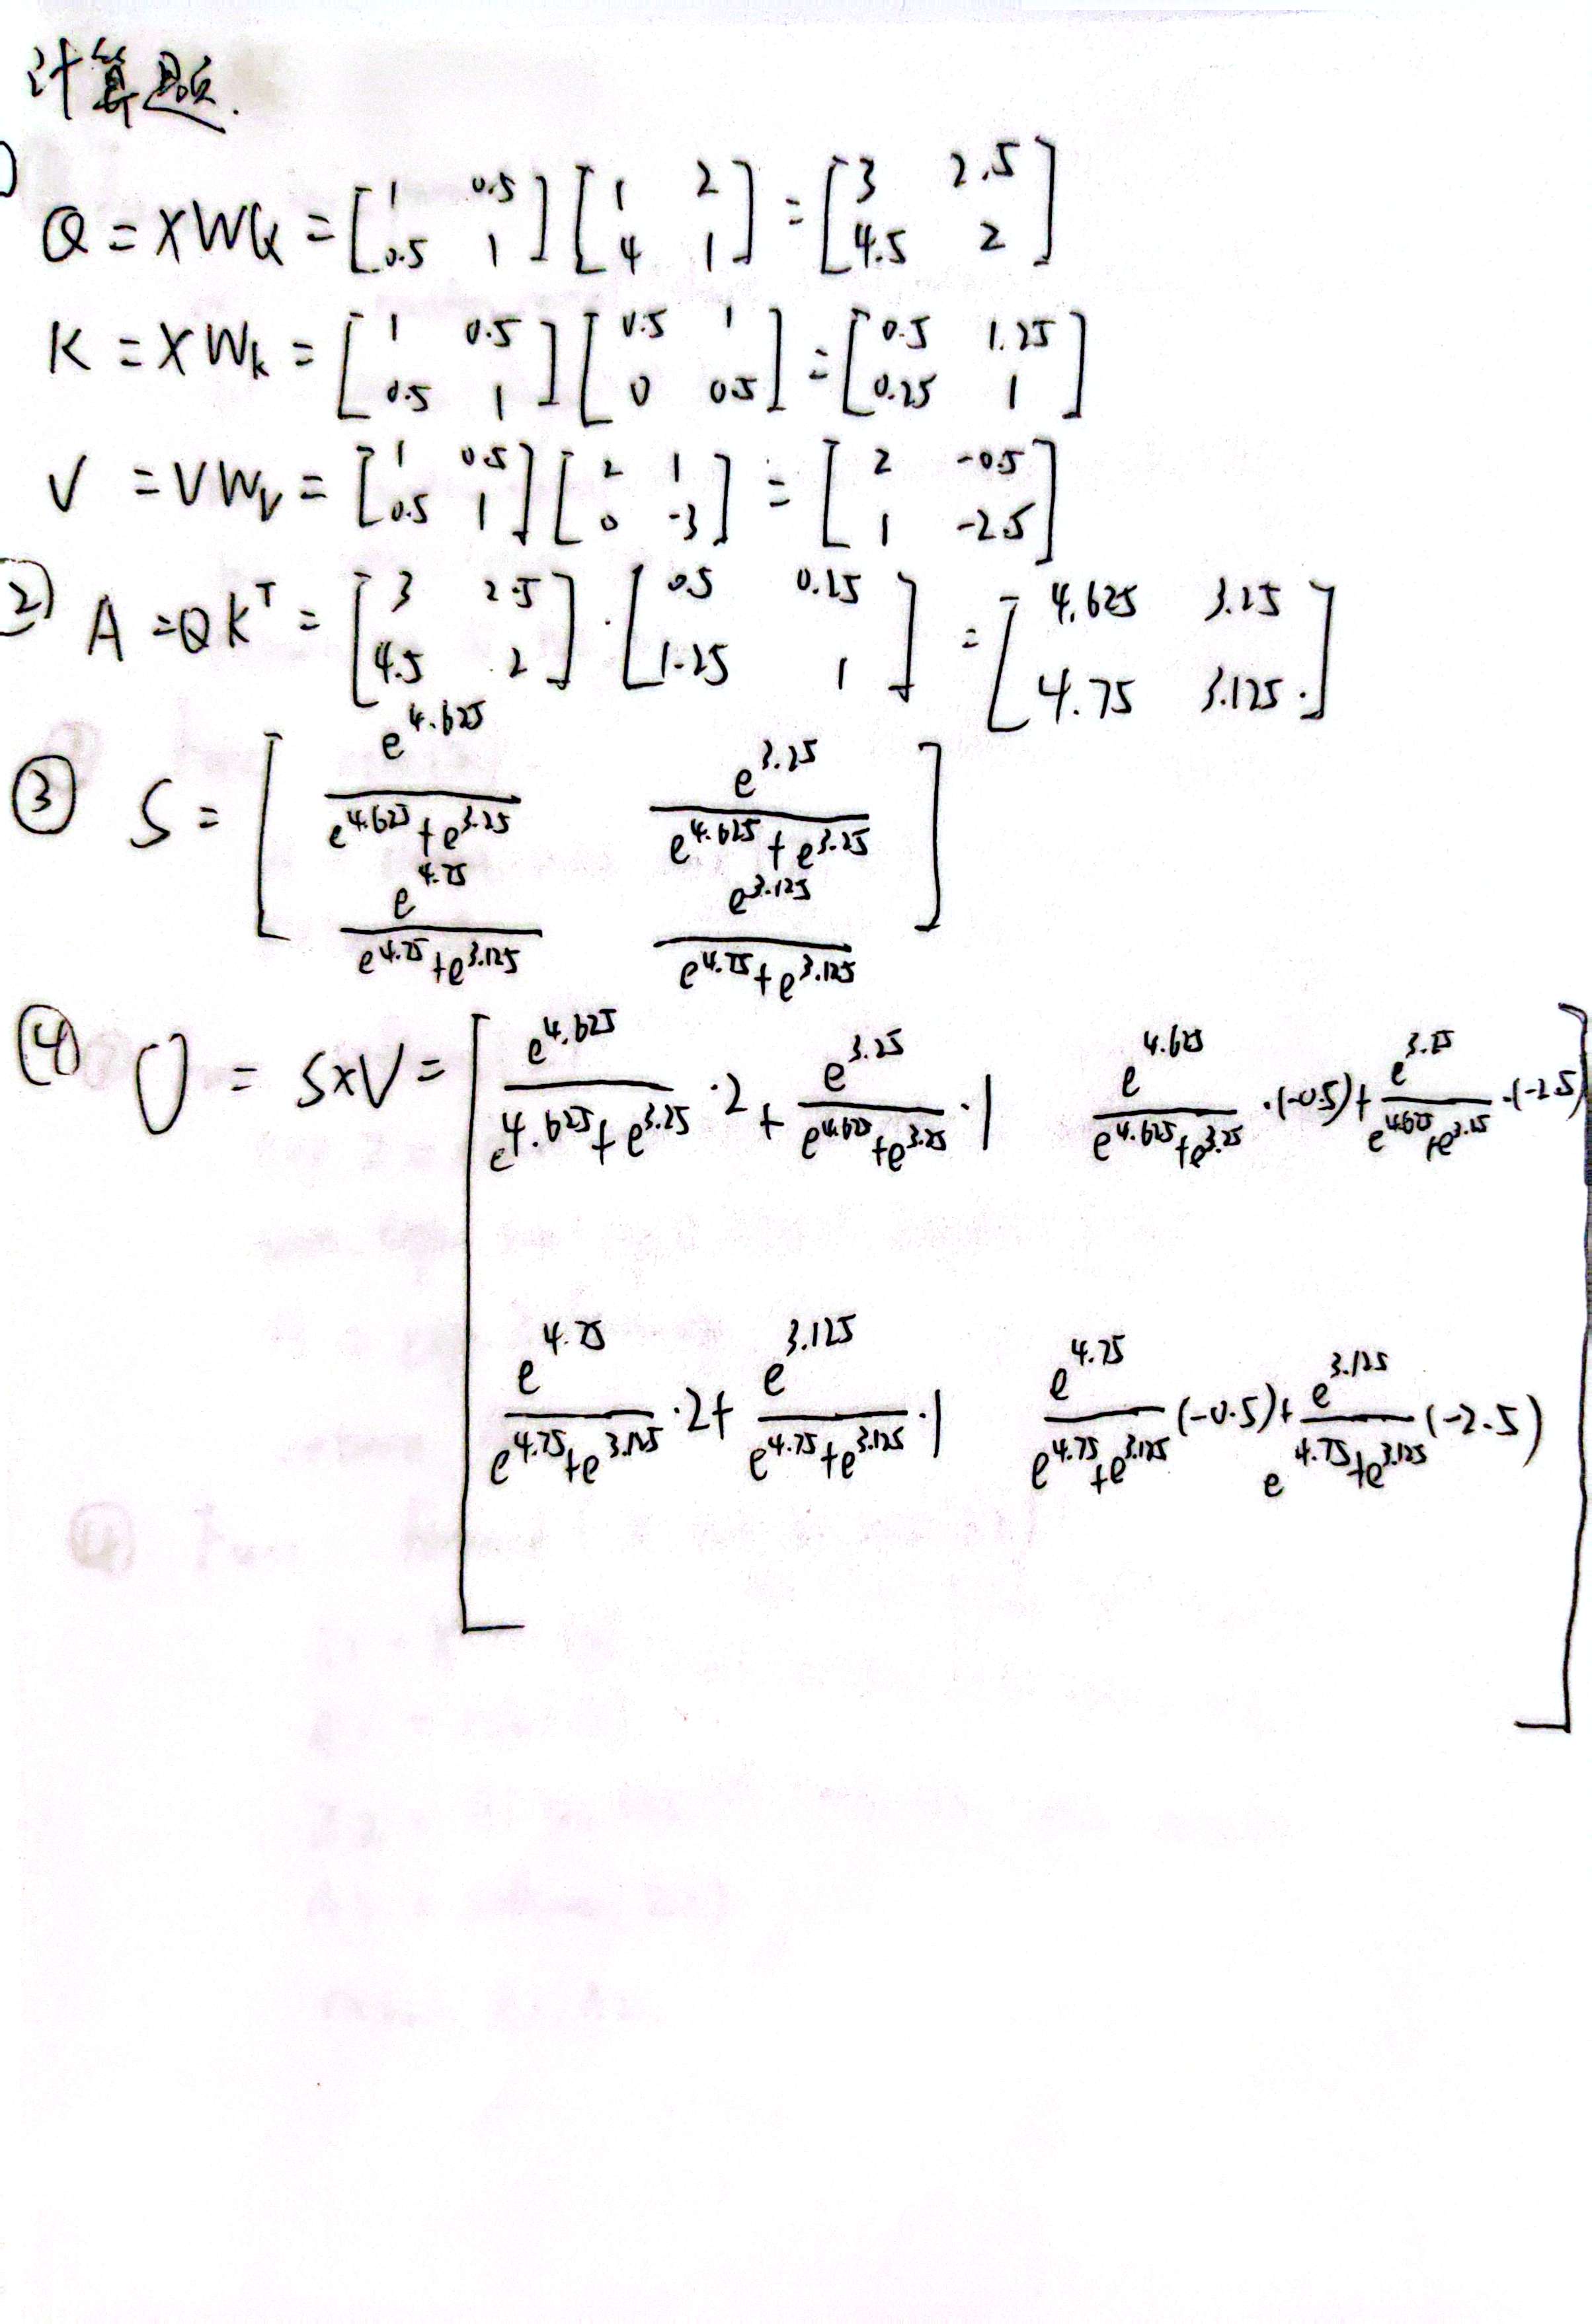 计算题.
Q = XWQ = [1 0.5; 0.5 1] [1 2; 4 1] = [3 2.5; 4.5 2]
K = XWk = [1 0.5; 0.5 1] [0.5 1; 0 0.5] = [0.5 1.25; 0.25 1]
V = VWV = [1 0.5; 0.5 1] [2 1; 0 -3] = [2 -0.5; 1 -2.5]
② A = QK^T = [3 2.5; 4.5 2] · [0.5 0.25; 1.25 1] = [4.625 3.25; 4.75 3.125]
③ S = [e^4.625/(e^4.625+e^3.25) e^3.25/(e^4.625+e^3.25); e^4.75/(e^4.75+e^3.125) e^3.125/(e^4.75+e^3.125)]
④ O = S×V = [e^4.625/(e^4.625+e^3.25)·2 + e^3.25/(e^4.625+e^3.25)·1 e^4.625/(e^4.625+e^3.25)·(-0.5) + e^3.25/(e^4.625+e^3.25)·(-2.5);
e^4.75/(e^4.75+e^3.125)·2 + e^3.125/(e^4.75+e^3.125)·1 e^4.75/(e^4.75+e^3.125)(-0.5) + e^3.125/(e^4.75+e^3.125)(-2.5)]